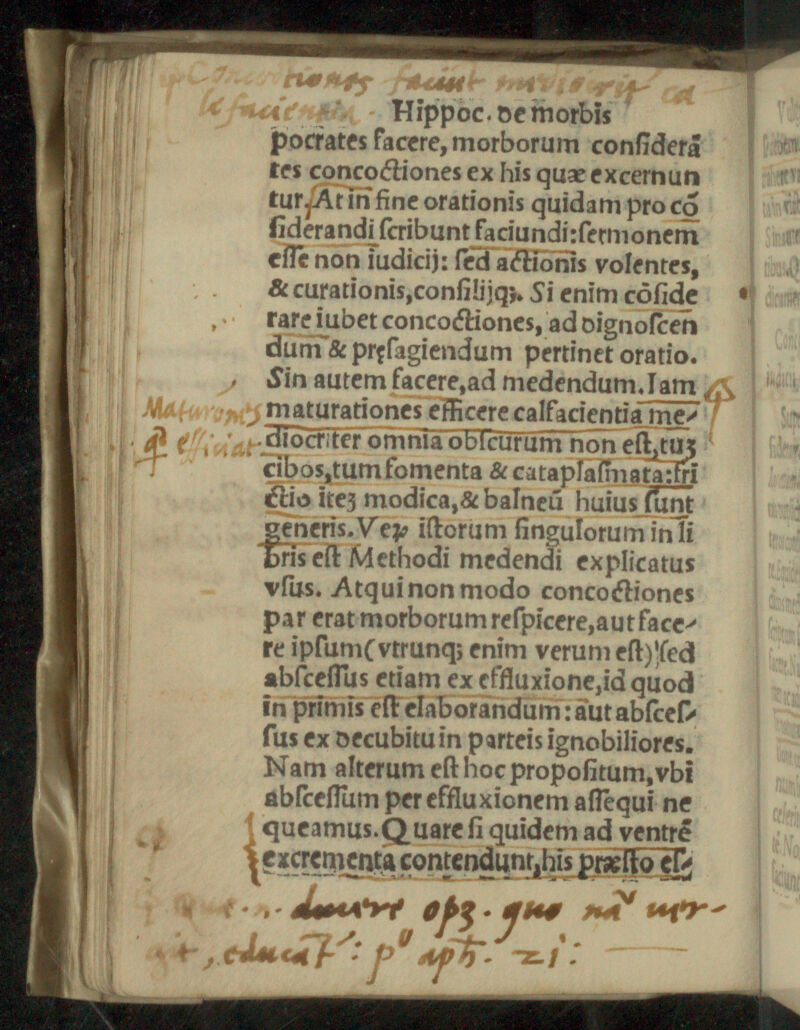 faciunt
Hippoc. de morbis
pocrates facere, morborum cōſiderā
tes concoctiones ex his quæ excernun
tur. At in fine orationis quidam pro cō
ſiderandi ſcribunt faciundi: ſermonem
eſſe non iudicij: ſed actionis volentes,
& curationis, conſilijq;. Si enim cōſide
rare iubet concoctiones, ad dignoſcen
dum & pręſagiendum pertinet oratio.
Sin autem facere, ad medendum. Iam
Maturationes maturationes efficere calfacientia me-
diocriter omnia obſcurum non eſt, tuꝫ
cibos, tum fomenta & cataplaſmata: fri
ctio iteꝫ modica, & balneū huius ſunt
generis. Veꝝ iſtorum ſingulorum in li
bris eſt Methodi medendi explicatus
vſus. Atqui non modo concoctiones
par erat morborum reſpicere, aut face-
re ipſum (vtrunq; enim verum eſt) ſed
abſceſſus etiam ex effluxione, id quod
in primis eſt elaborandum: aut abſceſ-
ſus ex decubitu in parteis ignobiliores.
Nam alterum eſt hoc propoſitum, vbi
abſceſſum per effluxionem aſſequi ne
queamus. Quare ſi quidem ad ventrē
excrementa contendunt, his præſto eſ-
ducere opꝫ. quo nā ver-
educat: pº aph. 21: